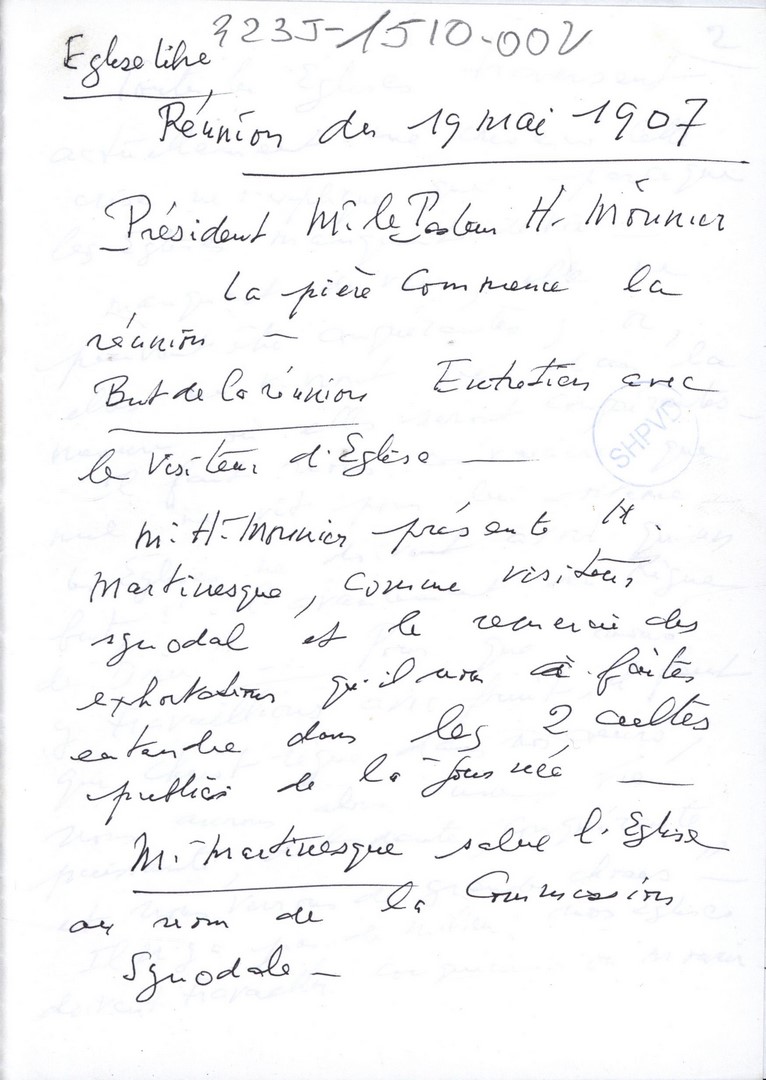 323J-1510-002
Eglise libre
Réunion du 19 mai 1907
Président Mr. le Pasteur H. Mounier
La pière Commence la
réunion —
But de la réunion Entretien avec
le Visiteur d'Eglise —
SHPVD
M. H. Mounier présente M.
Martinesque, comme visiteur
synodal et le remercie des
exhortations qu'il nous a faites
entendre dans les 2 cultes
publics de la journée —
M. Martinesque salue l'Eglise
au nom de la Commission
Synodale —